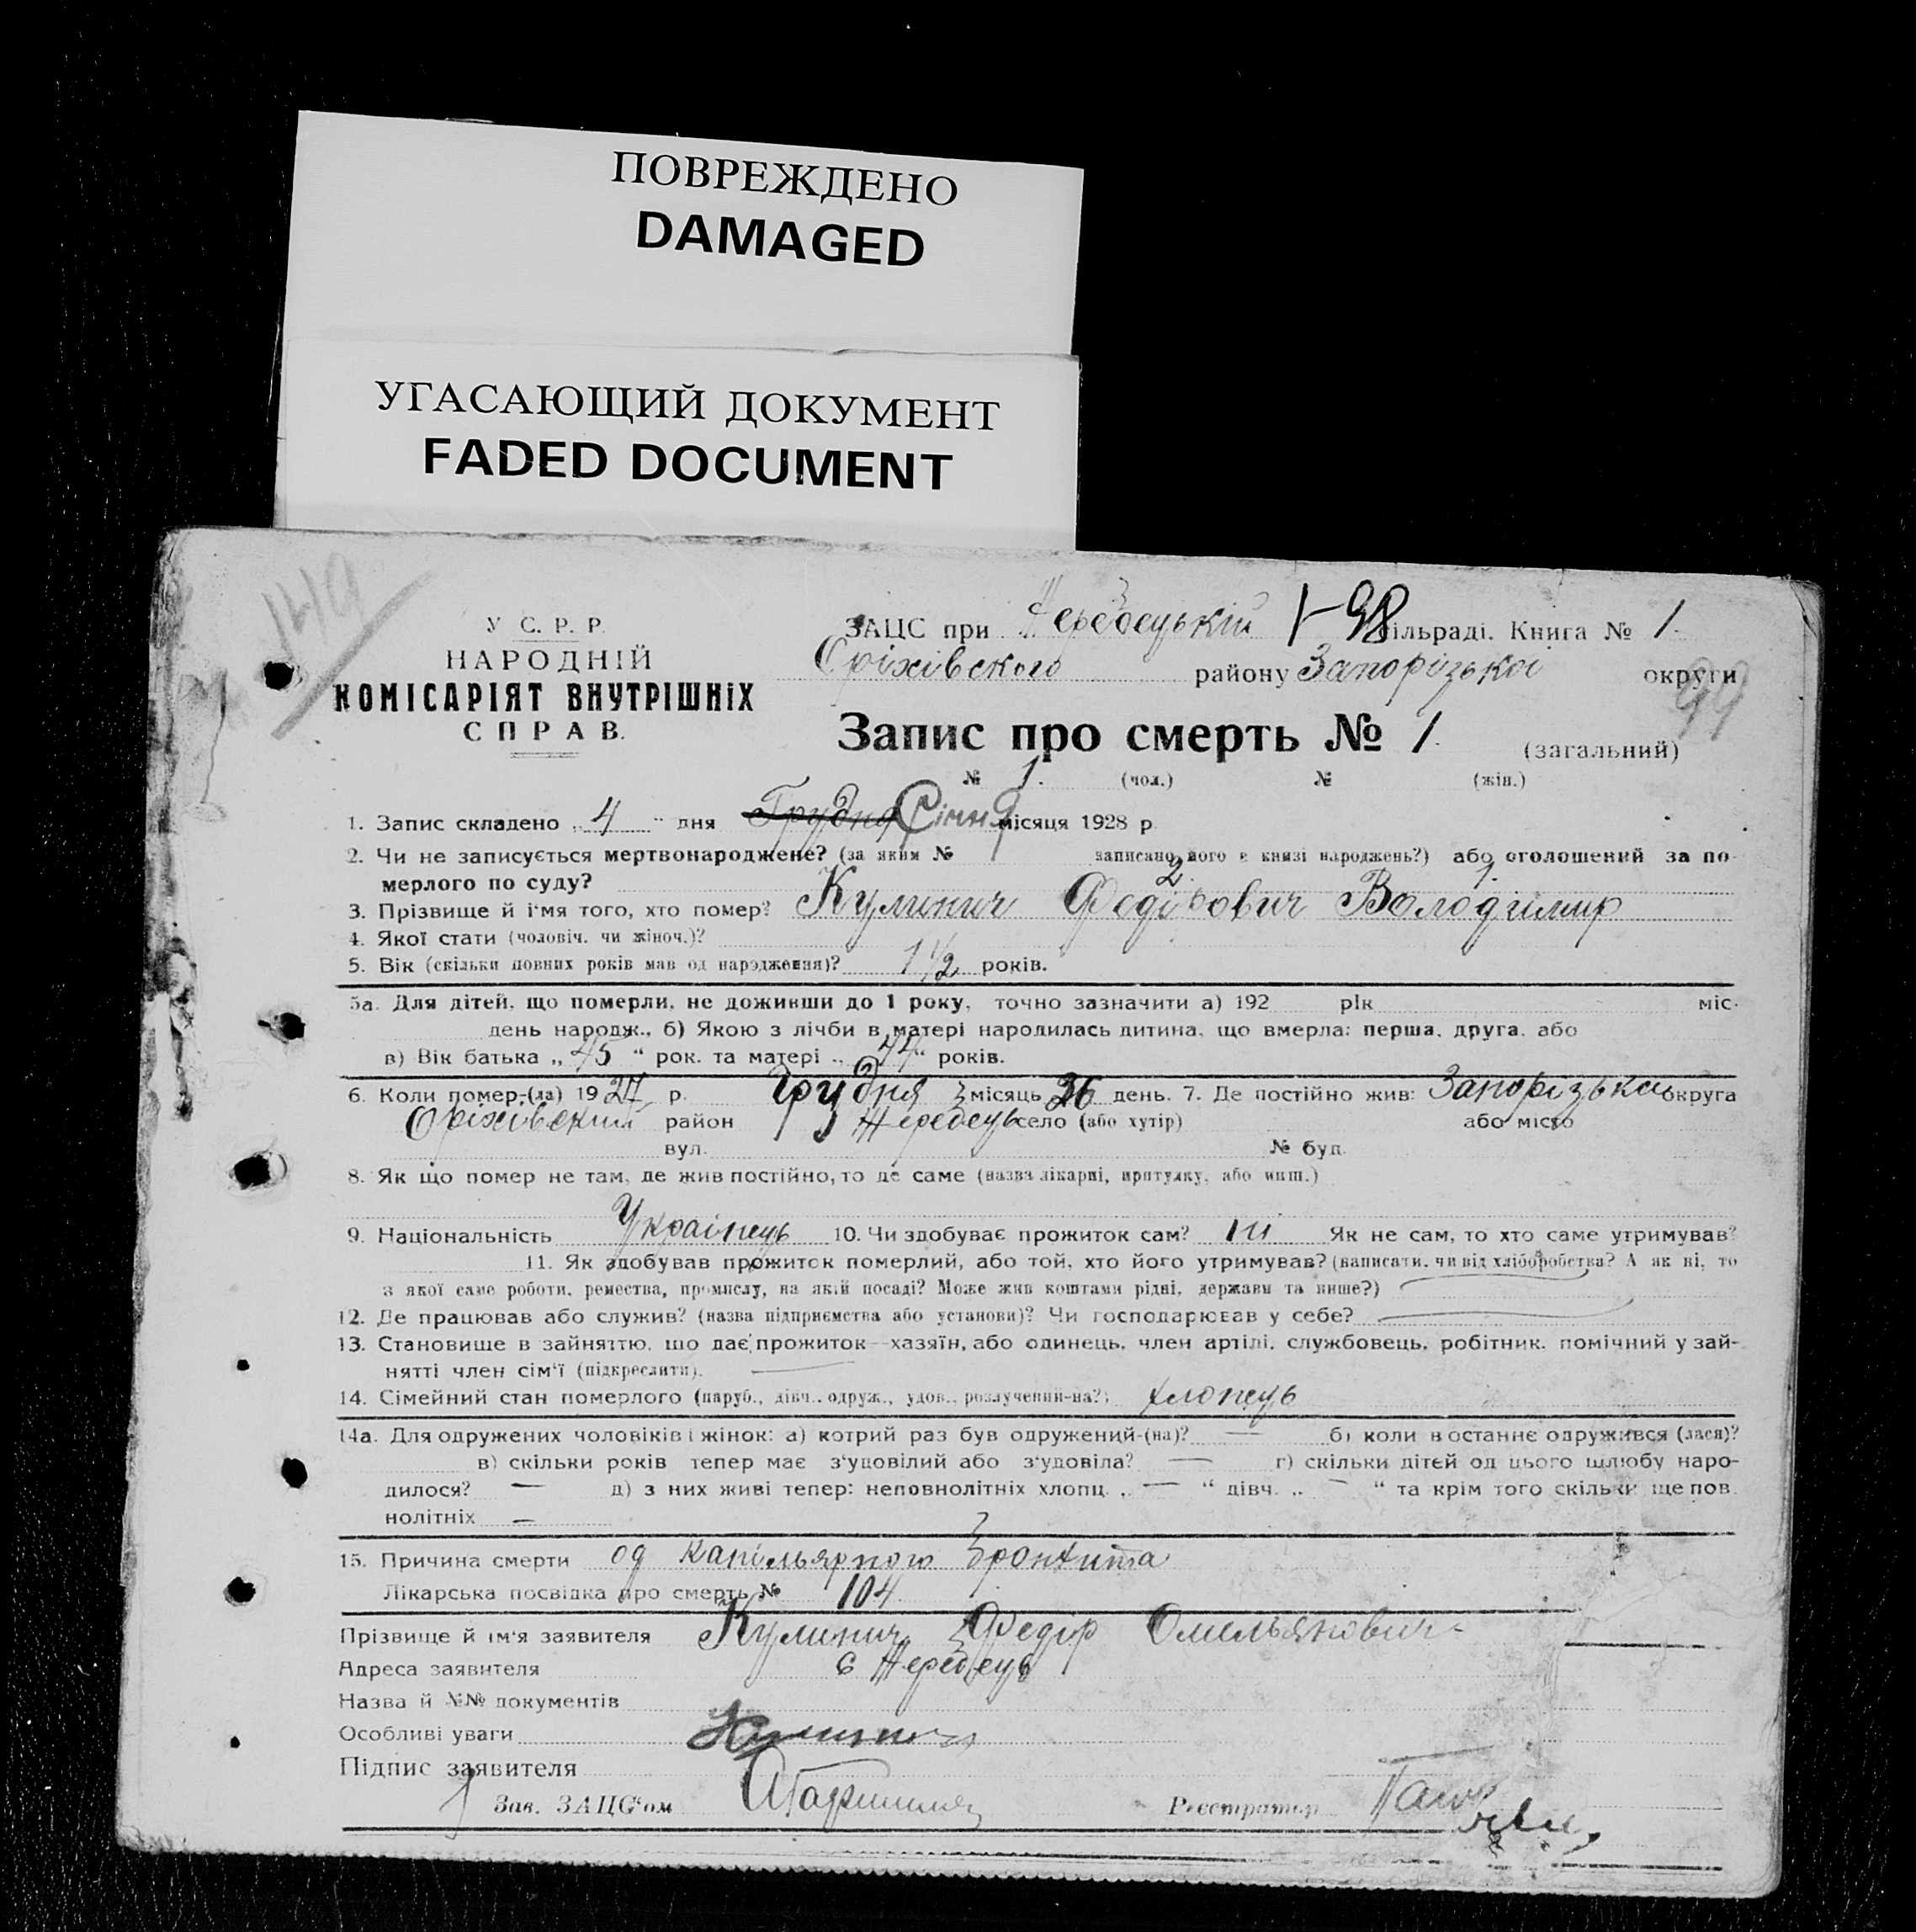 ПОВРЕЖДЕНО
DAMAGED
УГАСАЮЩИЙ ДОКУМЕНТ
FADED DOCUMENT
149
У С. Р. Р.
НАРОДНІЙ
КОМІСАРІЯТ ВНУТРІШНІХ
СПРАВ.
ЗАЦС при Жеребецькій сільраді. Книга № 1.
Оріхівского району Запорізькоі округи
99
Запис про смерть № 1. (загальний)
№ 1. (чол.) № (жін.)
1. Запис складено „ 4 “ дня Грудня Січня місяця 1928 р.
2. Чи не записується мертвонароджене? (за яким № записано його в книзі народжень?) або оголошений за по-
мерлого по суду?
2. 1.
3. Прізвище й і'мя того, хто помер? Кулинич Федірович Володимир
4. Якої стати (чоловіч. чи жіноч.)?
5. Вік (скільки повних років мав од народження)? 1 1/2 років.
5а. Для дітей, що померли, не доживши до 1 року, точно зазначити а) 192 рік міс.
день народж., б) Якою з лічби в матері народилась дитина, що вмерла: перша, друга, або
в) Вік батька „ 45 “ рок. та матері „ 44 “ років.
6. Коли помер-(ла) 1927 р. Грудня місяць 26 день. 7. Де постійно жив: Запорізька округа
Оріхівский район Жеребець село (або хутір) або місто
вул. № буд.
8. Як що помер не там, де жив постійно, то де саме (назва лікарні, притулку, або инш.)
9. Національність Українець 10. Чи здобуває прожиток сам? ні Як не сам, то хто саме утримував?
11. Як здобував прожиток померлий, або той, хто його утримував? (написати, чи від хліборобства? А як ні, то
з якої саме роботи, ремества, промислу, на якій посаді? Може жив коштами рідні, держави та инше?)
12. Де працював або служив? (назва підприємства або установи)? Чи господарював у себе?
13. Становище в зайняттю, що дає прожиток—хазяїн, або одинець, член артілі, службовець, робітник, помічний у зай-
нятті член сім'ї (підкреслити).
14. Сімейний стан померлого (паруб., дівч., одруж., удов., розлучений-на?) хлопець
14а. Для одружених чоловіків і жінок: а) котрий раз був одружений-(на)? — б) коли востаннє одружився (лася)?
в) скільки років тепер має з'удовілий або з'удовіла? — г) скільки дітей од цього шлюбу наро-
дилося? — д) з них живі тепер: неповнолітніх хлопц. „ — “ дівч. „ — “ та крім того скільки ще пов
нолітніх —
15. Причина смерти од капільярного бронхита
Лікарська посвідка про смерть № 104.
Прізвище й ім'я заявителя Кулинич Федір Омельянович
Адреса заявителя с Жеребець
Назва й №№ документів
Особливі уваги
Підпис заявителя
Зав. ЗАЦС'ом Реєстратор